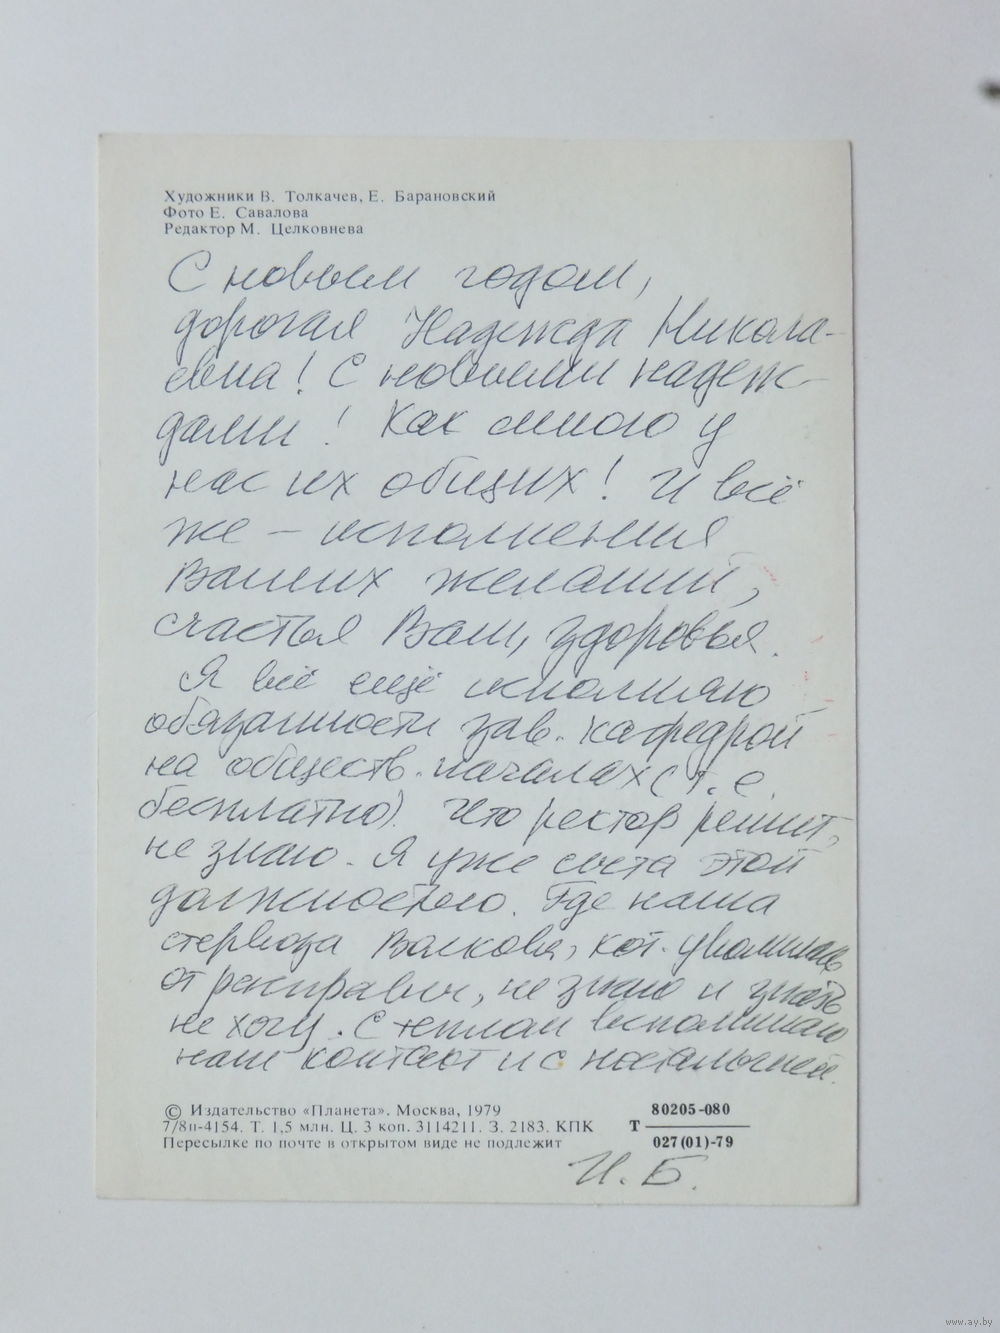 Художники В. Толкачев, Е. Барановский
Фото Е. Савалова
Редактор М. Целковнева
С новым годом,
дорогая Надежда Никола-
евна! С новыми надеж-
дами! Как много у
нас их общих! И всё
же – исполнения
Ваших желаний,
счастья Вам, здоровья.
Я всё ещё исполняю
обязанности зав. кафедрой
на обществ. началах (т. е.
бесплатно). Что ректор решит,
не знаю. Я уже сыта этой
должностью. Где наша
стервоза Волкова, кот. уволилась
от расправы, не знаю и знать
не хочу. С теплом вспоминаю
наш контакт и с ностальгией.
© Издательство «Планета». Москва, 1979
7/8п-4154. Т. 1,5 млн. Ц. 3 коп. 3114211. З. 2183. КПК
Пересылке по почте в открытом виде не подлежит
80205-080
Т
027(01)-79
И. Б.
www.ay.by